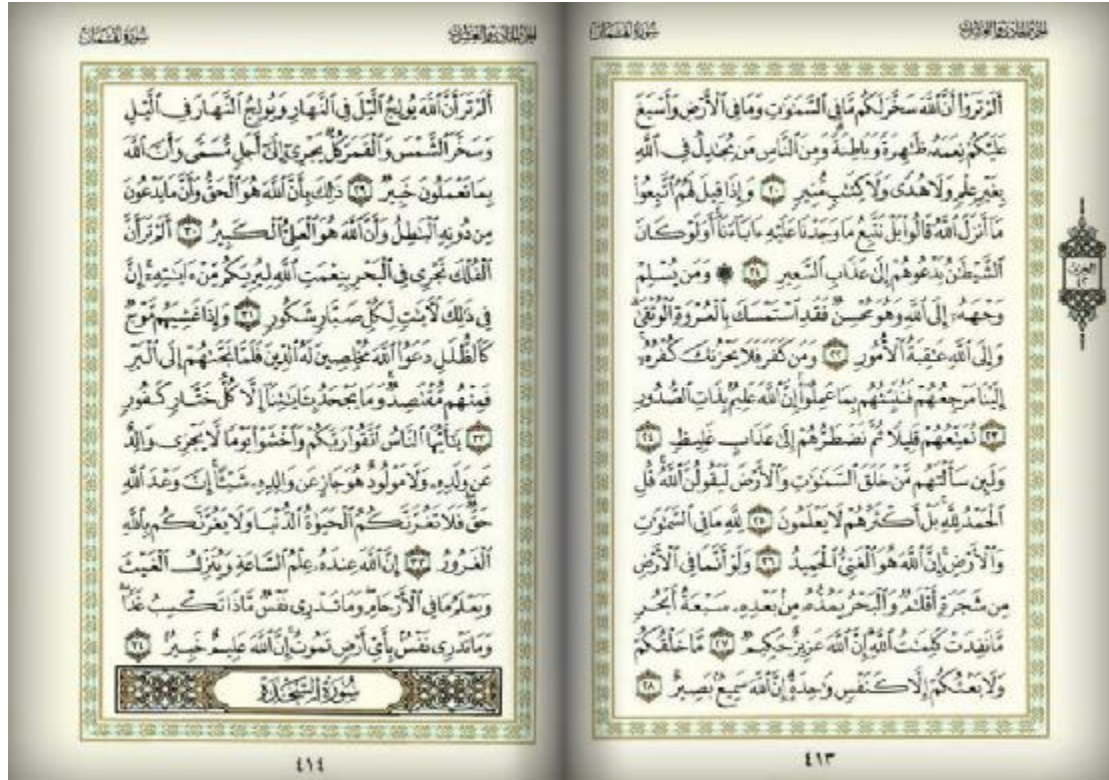 الجزء الحادي والعشرون
سورة لقمان
أَلَمْ تَرَوْا۟ أَنَّ ٱللَّهَ سَخَّرَ لَكُم مَّا فِى ٱلسَّمَٰوَٰتِ وَمَا فِى ٱلْأَرْضِ وَأَسْبَغَ
عَلَيْكُمْ نِعَمَهُۥ ظَٰهِرَةً وَبَاطِنَةً وَمِنَ ٱلنَّاسِ مَن يُجَٰدِلُ فِى ٱللَّهِ
بِغَيْرِ عِلْمٍ وَلَا هُدًى وَلَا كِتَٰبٍ مُّنِيرٍ ٢٠ وَإِذَا قِيلَ لَهُمُ ٱتَّبِعُوا۟
مَآ أَنزَلَ ٱللَّهُ قَالُوا۟ بَلْ نَتَّبِعُ مَا وَجَدْنَا عَلَيْهِ ءَابَآءَنَآ أَوَلَوْ كَانَ
ٱلشَّيْطَٰنُ يَدْعُوهُمْ إِلَىٰ عَذَابِ ٱلسَّعِيرِ ٢١ ۞ وَمَن يُسْلِمْ
وَجْهَهُۥٓ إِلَى ٱللَّهِ وَهُوَ مُحْسِنٌ فَقَدِ ٱسْتَمْسَكَ بِٱلْعُرْوَةِ ٱلْوُثْقَىٰ
وَإِلَى ٱللَّهِ عَٰقِبَةُ ٱلْأُمُورِ ٢٢ وَمَن كَفَرَ فَلَا يَحْزُنكَ كُفْرُهُۥٓ
إِلَيْنَا مَرْجِعُهُمْ فَنُنَبِّئُهُم بِمَا عَمِلُوٓا۟ إِنَّ ٱللَّهَ عَلِيمٌۢ بِذَاتِ ٱلصُّدُورِ
٢٣ نُمَتِّعُهُمْ قَلِيلًا ثُمَّ نَضْطَرُّهُمْ إِلَىٰ عَذَابٍ غَلِيظٍ ٢٤
وَلَئِن سَأَلْتَهُم مَّنْ خَلَقَ ٱلسَّمَٰوَٰتِ وَٱلْأَرْضَ لَيَقُولُنَّ ٱللَّهُ قُلِ
ٱلْحَمْدُ لِلَّهِ بَلْ أَكْثَرُهُمْ لَا يَعْلَمُونَ ٢٥ لِلَّهِ مَا فِى ٱلسَّمَٰوَٰتِ
وَٱلْأَرْضِ إِنَّ ٱللَّهَ هُوَ ٱلْغَنِىُّ ٱلْحَمِيدُ ٢٦ وَلَوْ أَنَّمَا فِى ٱلْأَرْضِ
مِن شَجَرَةٍ أَقْلَٰمٌ وَٱلْبَحْرُ يَمُدُّهُۥ مِنۢ بَعْدِهِۦ سَبْعَةُ أَبْحُرٍ
مَّا نَفِدَتْ كَلِمَٰتُ ٱللَّهِ إِنَّ ٱللَّهَ عَزِيزٌ حَكِيمٌ ٢٧ مَّا خَلْقُكُمْ
وَلَا بَعْثُكُمْ إِلَّا كَنَفْسٍ وَٰحِدَةٍ إِنَّ ٱللَّهَ سَمِيعٌۢ بَصِيرٌ ٢٨
الحزب
٤٢
٤١٣
الجزء الحادي والعشرون
سورة لقمان
أَلَمْ تَرَ أَنَّ ٱللَّهَ يُولِجُ ٱلَّيْلَ فِى ٱلنَّهَارِ وَيُولِجُ ٱلنَّهَارَ فِى ٱلَّيْلِ
وَسَخَّرَ ٱلشَّمْسَ وَٱلْقَمَرَ كُلٌّ يَجْرِىٓ إِلَىٰٓ أَجَلٍ مُّسَمًّى وَأَنَّ ٱللَّهَ
بِمَا تَعْمَلُونَ خَبِيرٌ ٢٩ ذَٰلِكَ بِأَنَّ ٱللَّهَ هُوَ ٱلْحَقُّ وَأَنَّ مَا يَدْعُونَ
مِن دُونِهِ ٱلْبَٰطِلُ وَأَنَّ ٱللَّهَ هُوَ ٱلْعَلِىُّ ٱلْكَبِيرُ ٣٠ أَلَمْ تَرَ أَنَّ
ٱلْفُلْكَ تَجْرِى فِى ٱلْبَحْرِ بِنِعْمَتِ ٱللَّهِ لِيُرِيَكُم مِّنْ ءَايَٰتِهِۦٓ إِنَّ
فِى ذَٰلِكَ لَءَايَٰتٍ لِّكُلِّ صَبَّارٍ شَكُورٍ ٣١ وَإِذَا غَشِيَهُم مَّوْجٌ
كَٱلظُّلَلِ دَعَوُا۟ ٱللَّهَ مُخْلِصِينَ لَهُ ٱلدِّينَ فَلَمَّا نَجَّىٰهُمْ إِلَى ٱلْبَرِّ
فَمِنْهُم مُّقْتَصِدٌ وَمَا يَجْحَدُ بِـَٔايَٰتِنَآ إِلَّا كُلُّ خَتَّارٍ كَفُورٍ
٣٢ يَٰٓأَيُّهَا ٱلنَّاسُ ٱتَّقُوا۟ رَبَّكُمْ وَٱخْشَوْا۟ يَوْمًا لَّا يَجْزِى وَالِدٌ
عَن وَلَدِهِۦ وَلَا مَوْلُودٌ هُوَ جَازٍ عَن وَالِدِهِۦ شَيْـًٔا إِنَّ وَعْدَ ٱللَّهِ
حَقٌّ فَلَا تَغُرَّنَّكُمُ ٱلْحَيَوٰةُ ٱلدُّنْيَا وَلَا يَغُرَّنَّكُم بِٱللَّهِ
ٱلْغَرُورُ ٣٣ إِنَّ ٱللَّهَ عِندَهُۥ عِلْمُ ٱلسَّاعَةِ وَيُنَزِّلُ ٱلْغَيْثَ
وَيَعْلَمُ مَا فِى ٱلْأَرْحَامِ وَمَا تَدْرِى نَفْسٌ مَّاذَا تَكْسِبُ غَدًا
وَمَا تَدْرِى نَفْسٌۢ بِأَىِّ أَرْضٍ تَمُوتُ إِنَّ ٱللَّهَ عَلِيمٌ خَبِيرٌۢ ٣٤
سورة السجدة
٤١٤